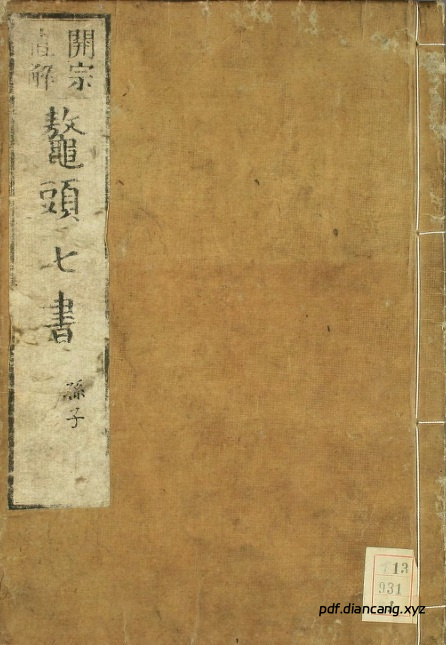 開宗
直解
鼇頭七書
孫子
113
931
1
pdf.diancang.xyz